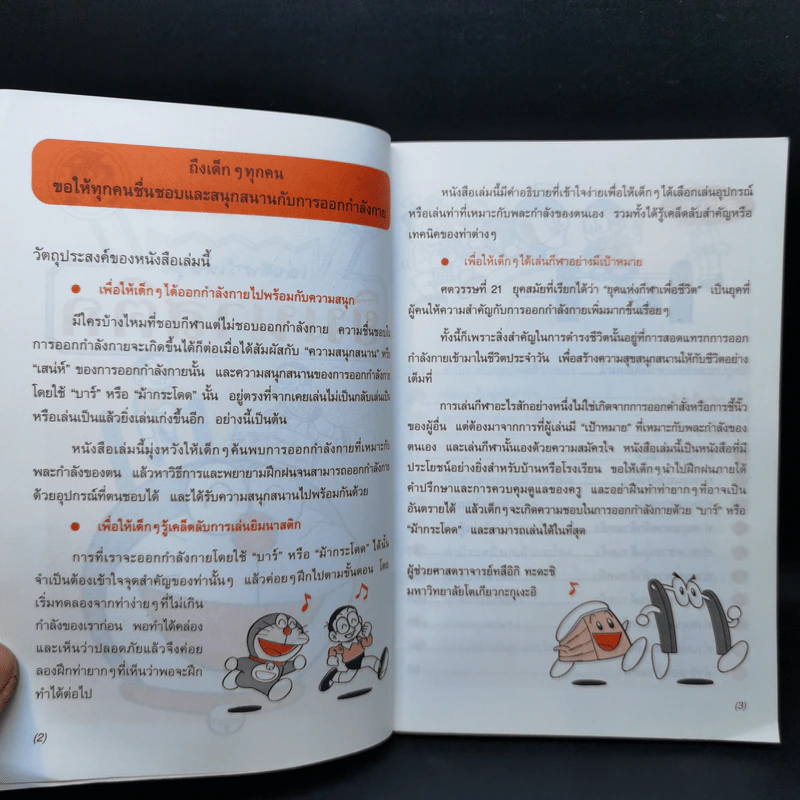 ถึงเด็กๆทุกคน
ขอให้ทุกคนชื่นชอบและสนุกสนานกับการออกกำลังกาย
วัตถุประสงค์ของหนังสือเล่มนี้
● เพื่อให้เด็กๆได้ออกกำลังกายไปพร้อมกับความสนุก
มีใครบ้างไหมที่ชอบกีฬาแต่ไม่ชอบออกกำลังกาย ความชื่นชอบใน
การออกกำลังกายจะเกิดขึ้นได้ก็ต่อเมื่อได้สัมผัสกับ "ความสนุกสนาน" หรือ
"เสน่ห์" ของการออกกำลังกายนั้น และความสนุกสนานของการออกกำลังกาย
โดยใช้ "บาร์" หรือ "ม้ากระโดด" นั้น อยู่ตรงที่จากเคยเล่นไม่เป็นกลับเล่นเป็น
หรือเล่นเป็นแล้วยิ่งเล่นเก่งขึ้นอีก อย่างนี้เป็นต้น
หนังสือเล่มนี้มุ่งหวังให้เด็กๆค้นพบการออกกำลังกายที่เหมาะกับ
พละกำลังของตน แล้วหาวิธีการและพยายามฝึกฝนจนสามารถออกกำลังกาย
ด้วยอุปกรณ์ที่ตนชอบได้ และได้รับความสนุกสนานไปพร้อมกันด้วย
● เพื่อให้เด็กๆรู้เคล็ดลับการเล่นยิมนาสติก
การที่เราจะออกกำลังกายโดยใช้ "บาร์" หรือ "ม้ากระโดด" ได้นั้น
จำเป็นต้องเข้าใจจุดสำคัญของท่านั้นๆ แล้วค่อยๆฝึกไปตามขั้นตอน โดย
เริ่มทดลองจากท่าง่ายๆที่ไม่เกิน
กำลังของเราก่อน พอทำได้คล่อง
และเห็นว่าปลอดภัยแล้วจึงค่อย
ลองฝึกท่ายากๆที่เห็นว่าพอจะฝึก
ทำได้ต่อไป
(2)
หนังสือเล่มนี้มีคำอธิบายที่เข้าใจง่ายเพื่อให้เด็กๆได้เลือกเล่นอุปกรณ์
หรือเล่นท่าที่เหมาะกับพละกำลังของตนเอง รวมทั้งได้รู้เคล็ดลับสำคัญหรือ
เทคนิคของท่าต่างๆ
● เพื่อให้เด็กๆได้เล่นกีฬาอย่างมีเป้าหมาย
ศตวรรษที่ 21 ยุคสมัยที่เรียกได้ว่า "ยุคแห่งกีฬาเพื่อชีวิต" เป็นยุคที่
ผู้คนให้ความสำคัญกับการออกกำลังกายเพิ่มมากขึ้นเรื่อยๆ
ทั้งนี้ก็เพราะสิ่งสำคัญในการดำรงชีวิตนั้นอยู่ที่การสอดแทรกการออก
กำลังกายเข้ามาในชีวิตประจำวัน เพื่อสร้างความสุขสนุกสนานให้กับชีวิตอย่าง
เต็มที่
การเล่นกีฬาอะไรสักอย่างหนึ่งไม่ใช่เกิดจากการออกคำสั่งหรือการชี้นิ้ว
ของผู้อื่น แต่ต้องมาจากการที่ผู้เล่นมี "เป้าหมาย" ที่เหมาะกับพละกำลังของ
ตนเอง และเล่นกีฬานั้นเองด้วยความสมัครใจ หนังสือเล่มนี้เป็นหนังสือที่มี
ประโยชน์อย่างยิ่งสำหรับบ้านหรือโรงเรียน ขอให้เด็กๆนำไปฝึกฝนภายใต้
คำปรึกษาและการควบคุมดูแลของครู และอย่าฝืนทำท่ายากๆที่อาจเป็น
อันตรายได้ แล้วเด็กๆจะเกิดความชอบในการออกกำลังกายด้วย "บาร์" หรือ
"ม้ากระโดด" และสามารถเล่นได้ในที่สุด
ผู้ช่วยศาสตราจารย์ทสึอิกิ ทะดะชิ
มหาวิทยาลัยโตเกียวกะกุเงะอิ
(3)